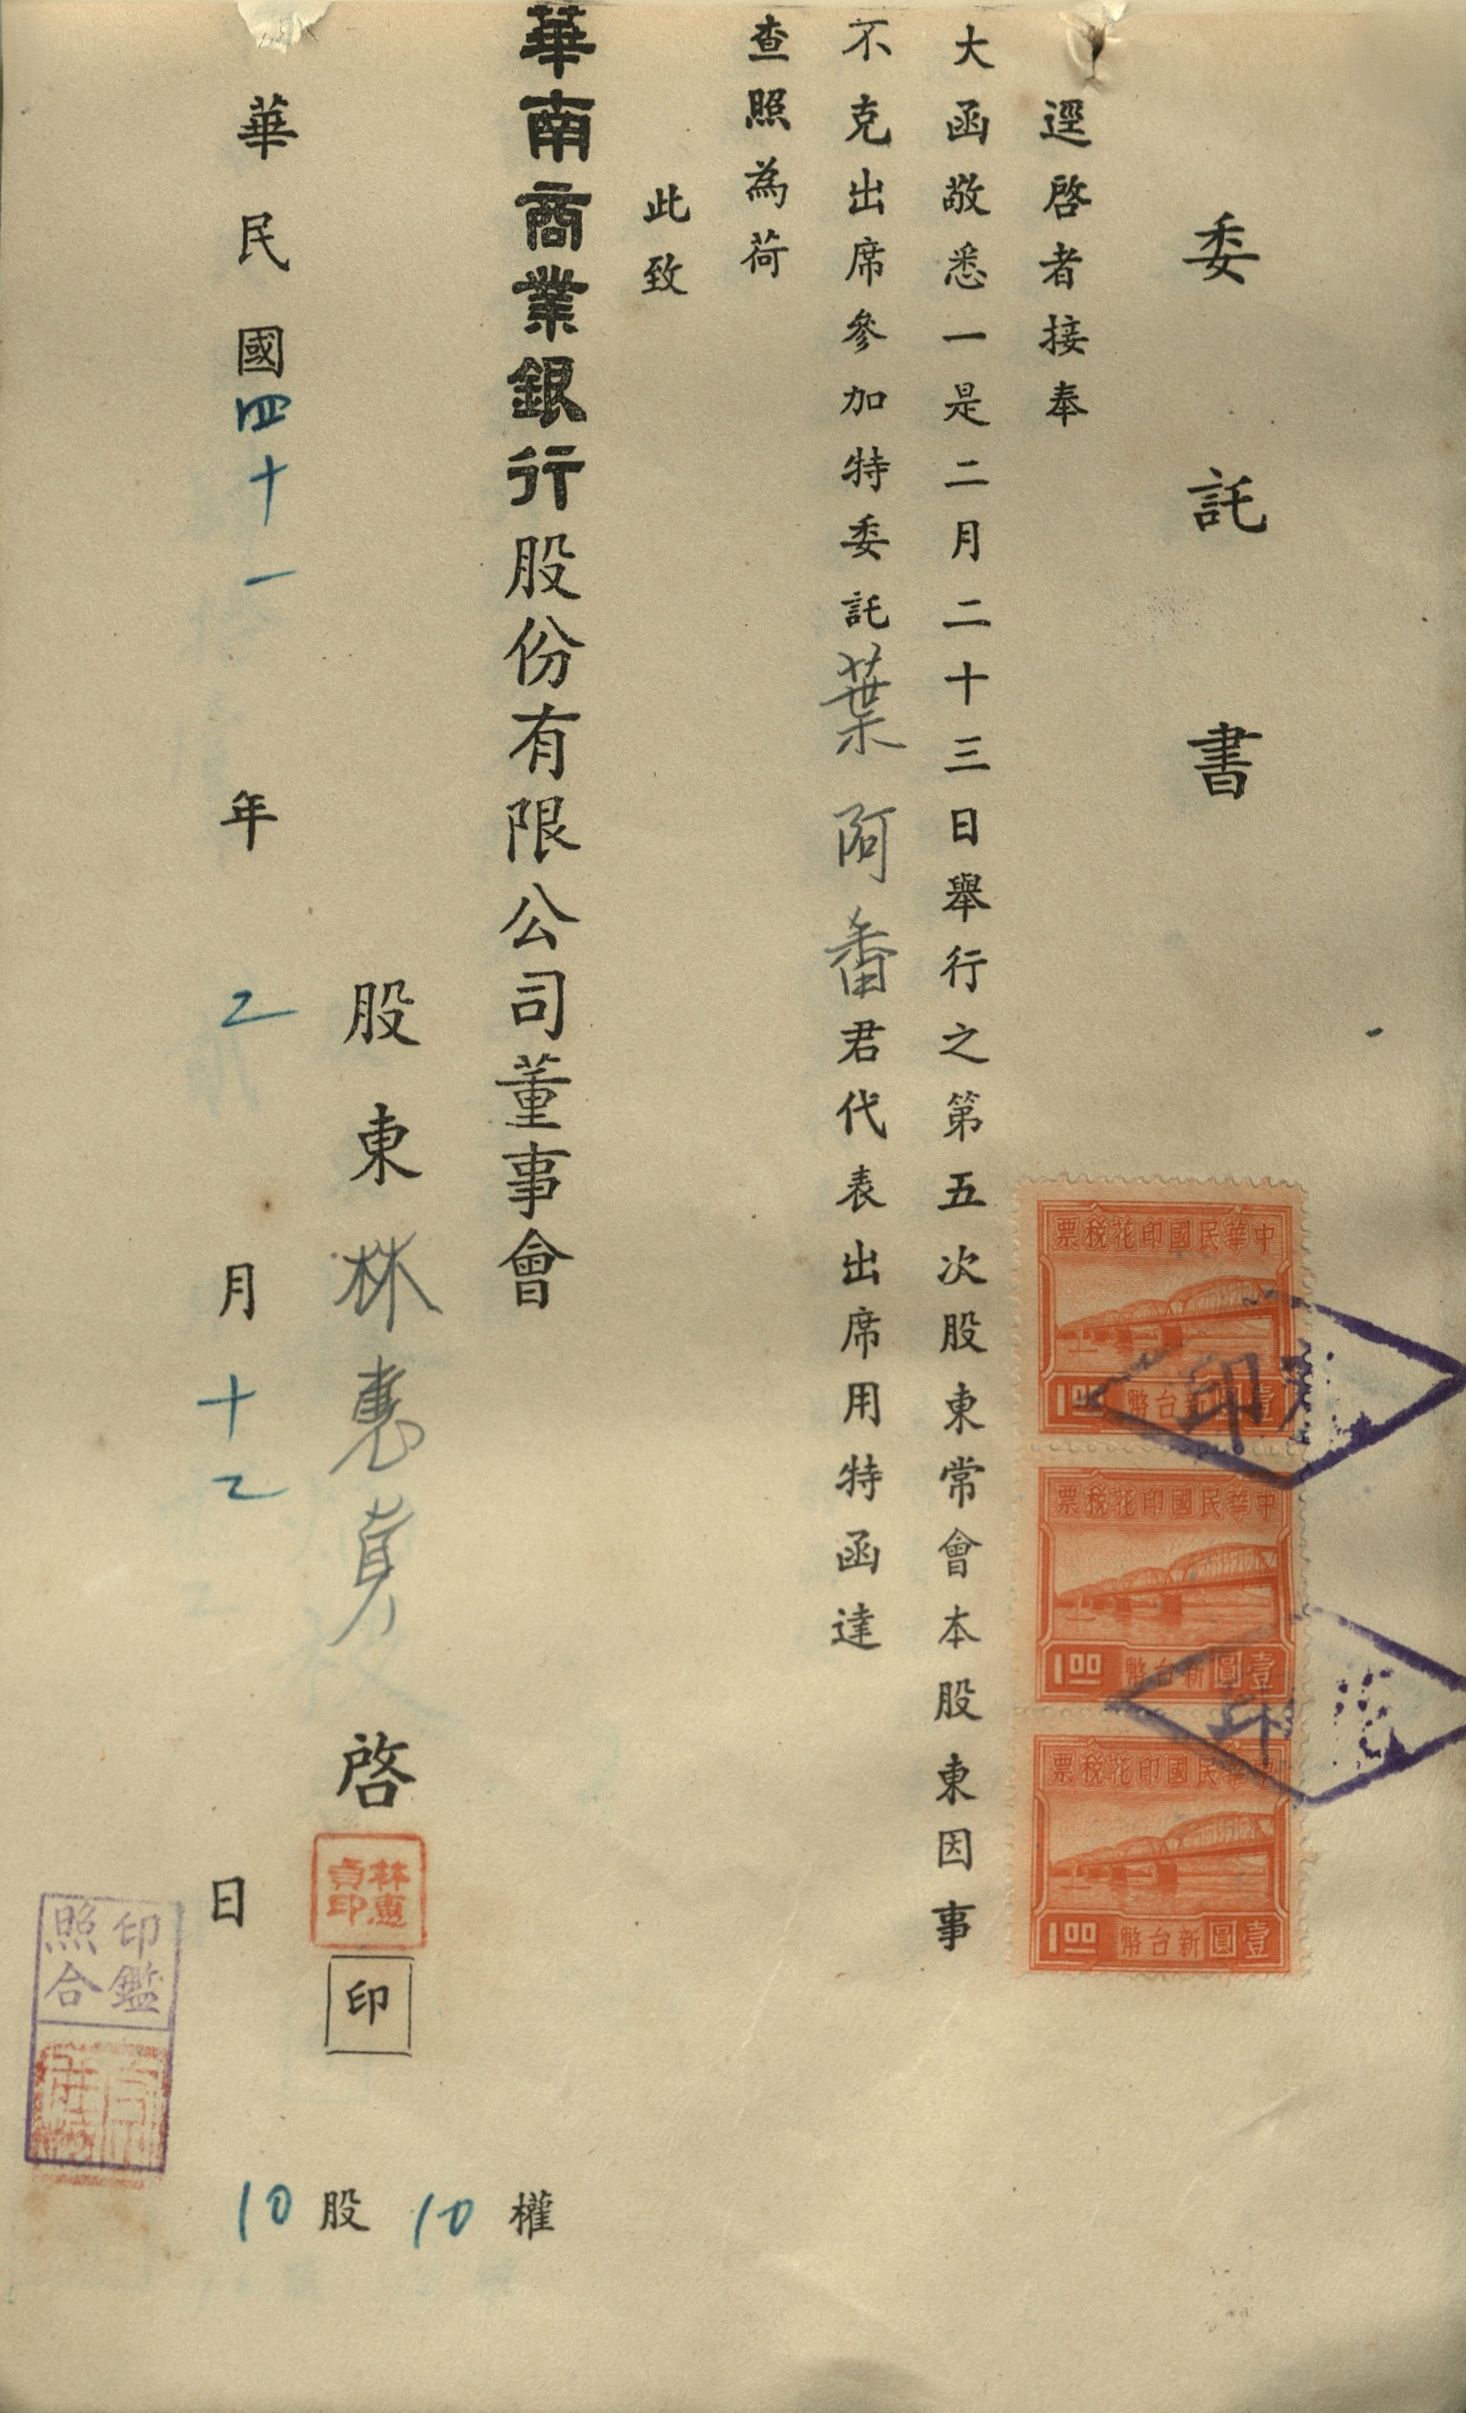 委託書
逕啓者接奉
大函敬悉一是二月二十三日舉行之第五次股東常會本股東因事
不克出席參加特委託葉阿番君代表出席用特函達
查照為荷
此致
華南商業銀行股份有限公司董事會
股東林惠貞啓
林惠貞印
印
華民國四十一年二月十二日
10股10權
印鑑照合
中華民國印花稅票
壹圓新台幣
1.00
中華民國印花稅票
壹圓新台幣
1.00
中華民國印花稅票
壹圓新台幣
1.00